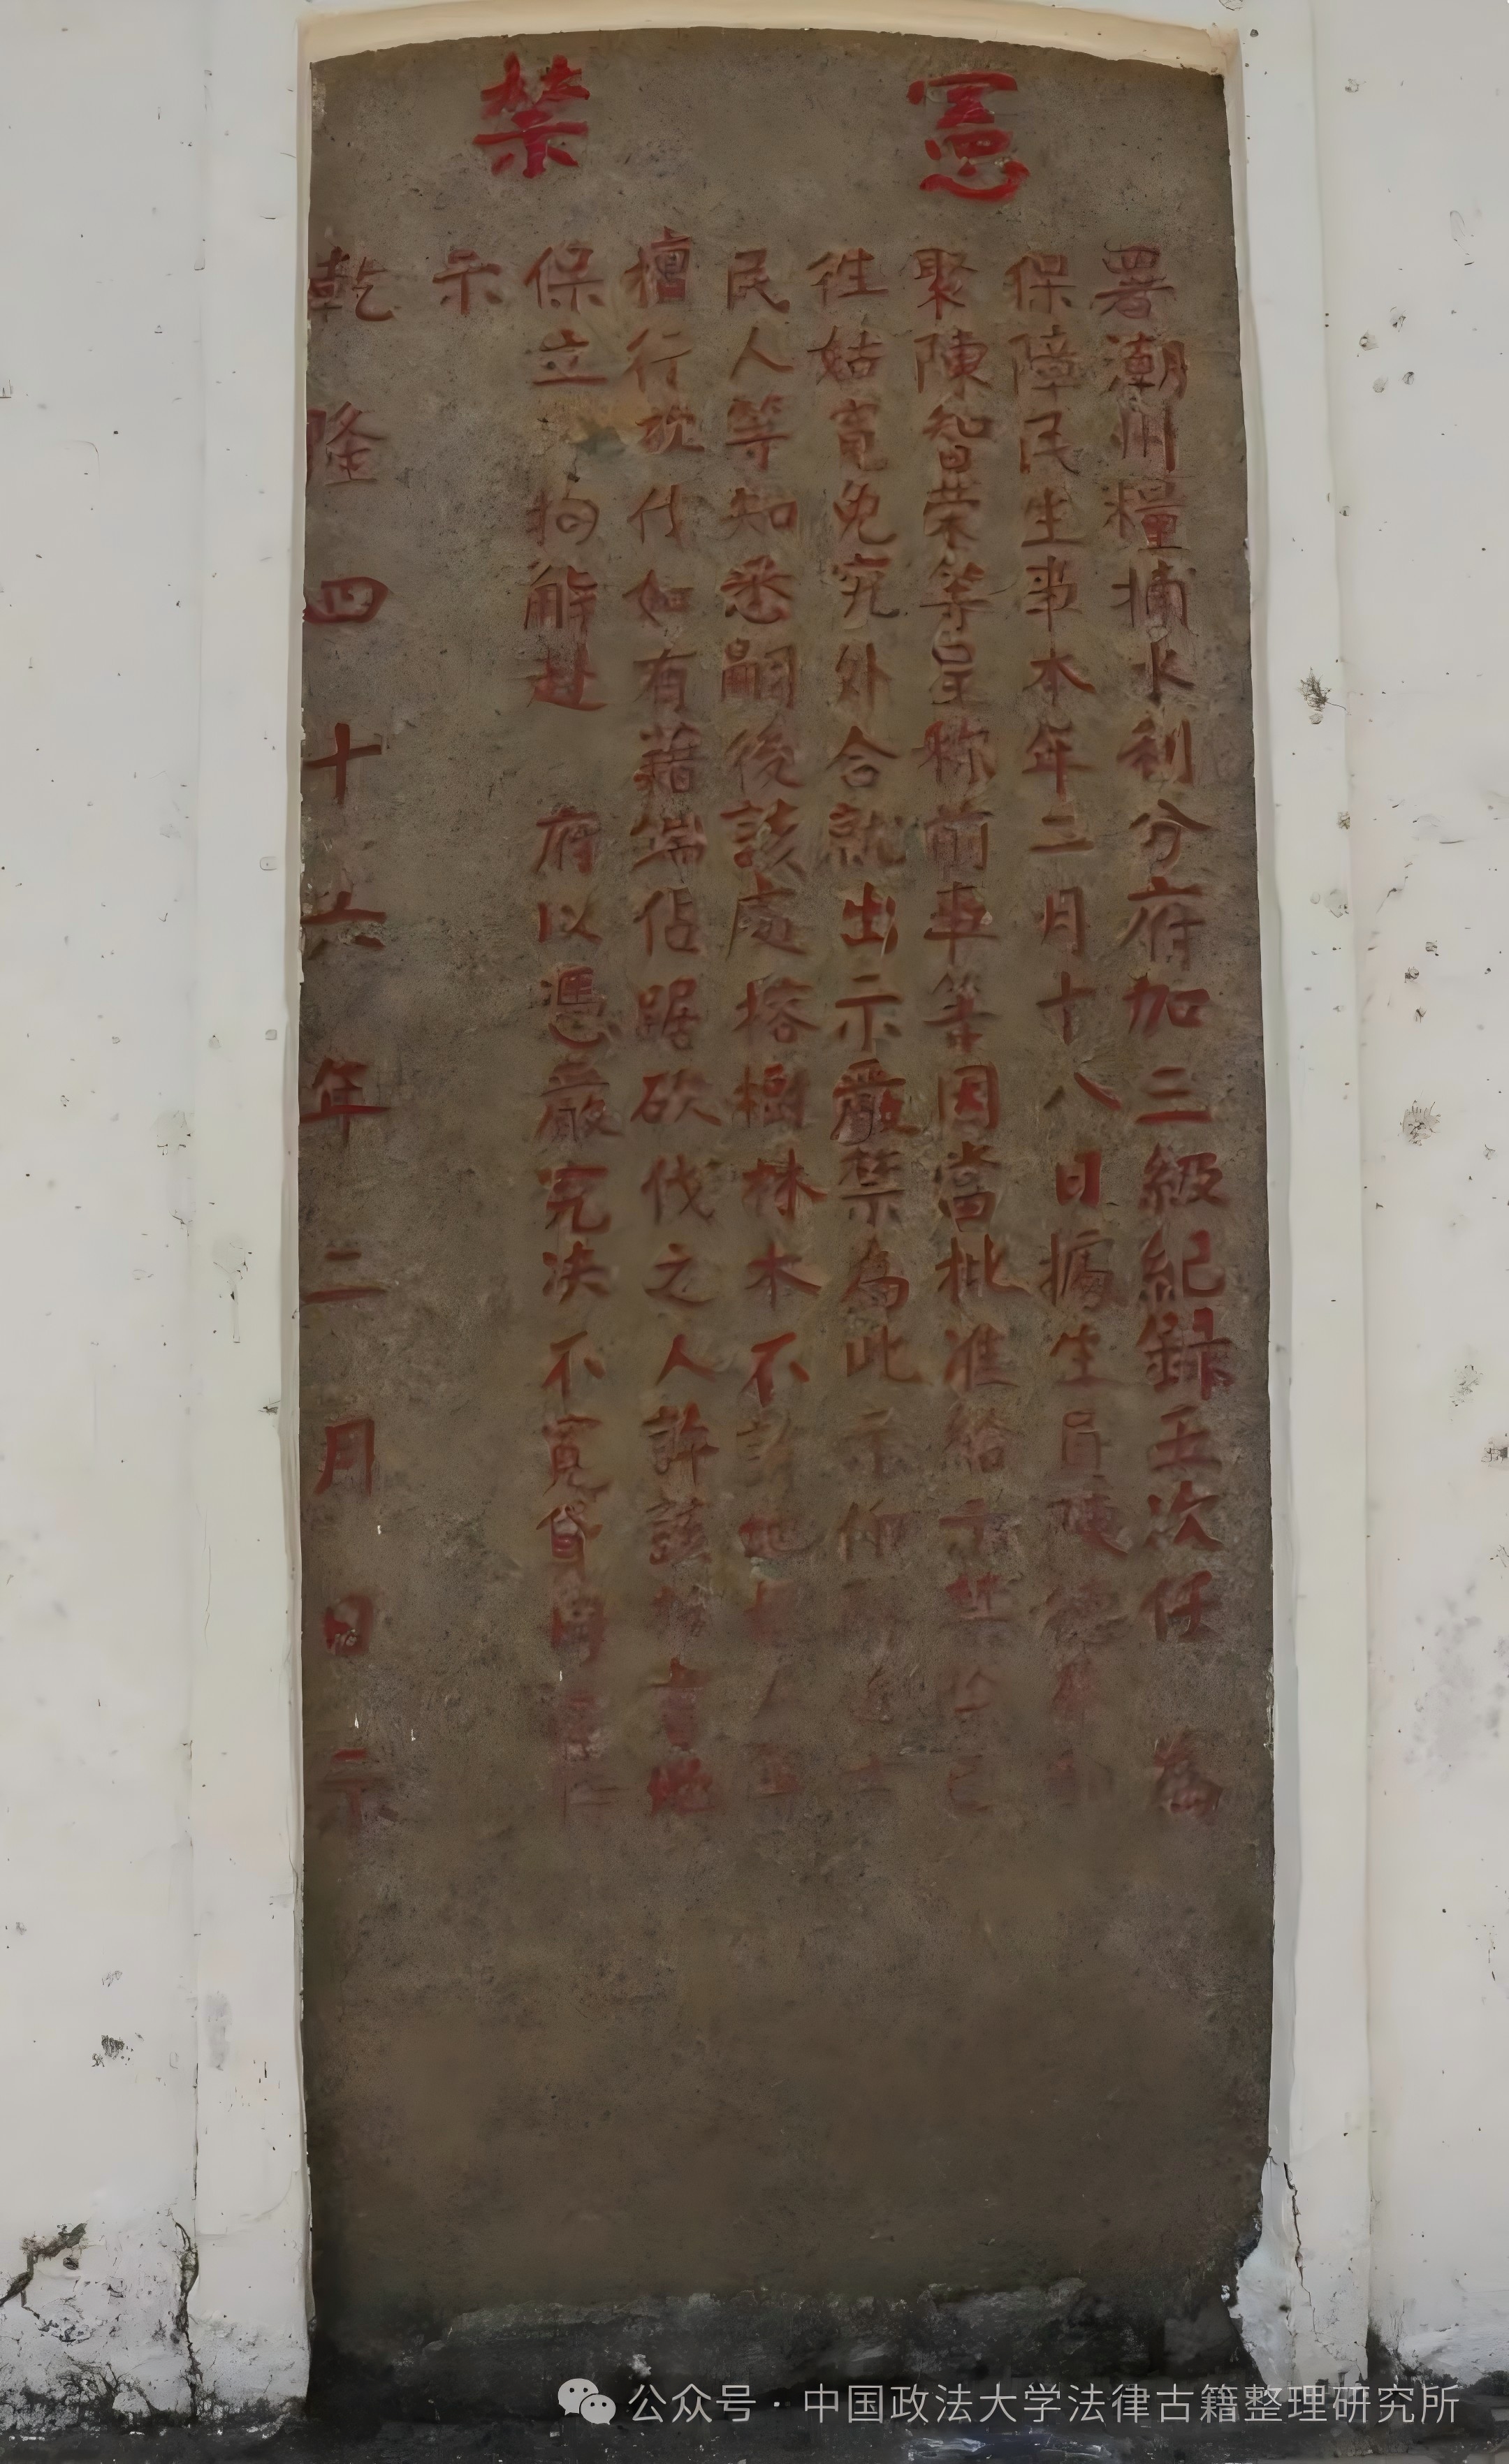 憲禁
署潮州糧捕水利分府加三級紀錄五次任 為
保障民生事本年二月十八日據生員陳德
聚陳智荣等呈称前事等因當批准給示禁 已
徃姑寬免究外合就出示嚴禁為此示仰 士
民人等知悉嗣後該處榕樹林木不許地 人
擅行砍伐如有藉端佔踞砍伐之人許該 地
保立 拘解赴 府以憑嚴究决不寬貸
示
乾隆四十六年二月日示
公众号 · 中国政法大学法律古籍整理研究所